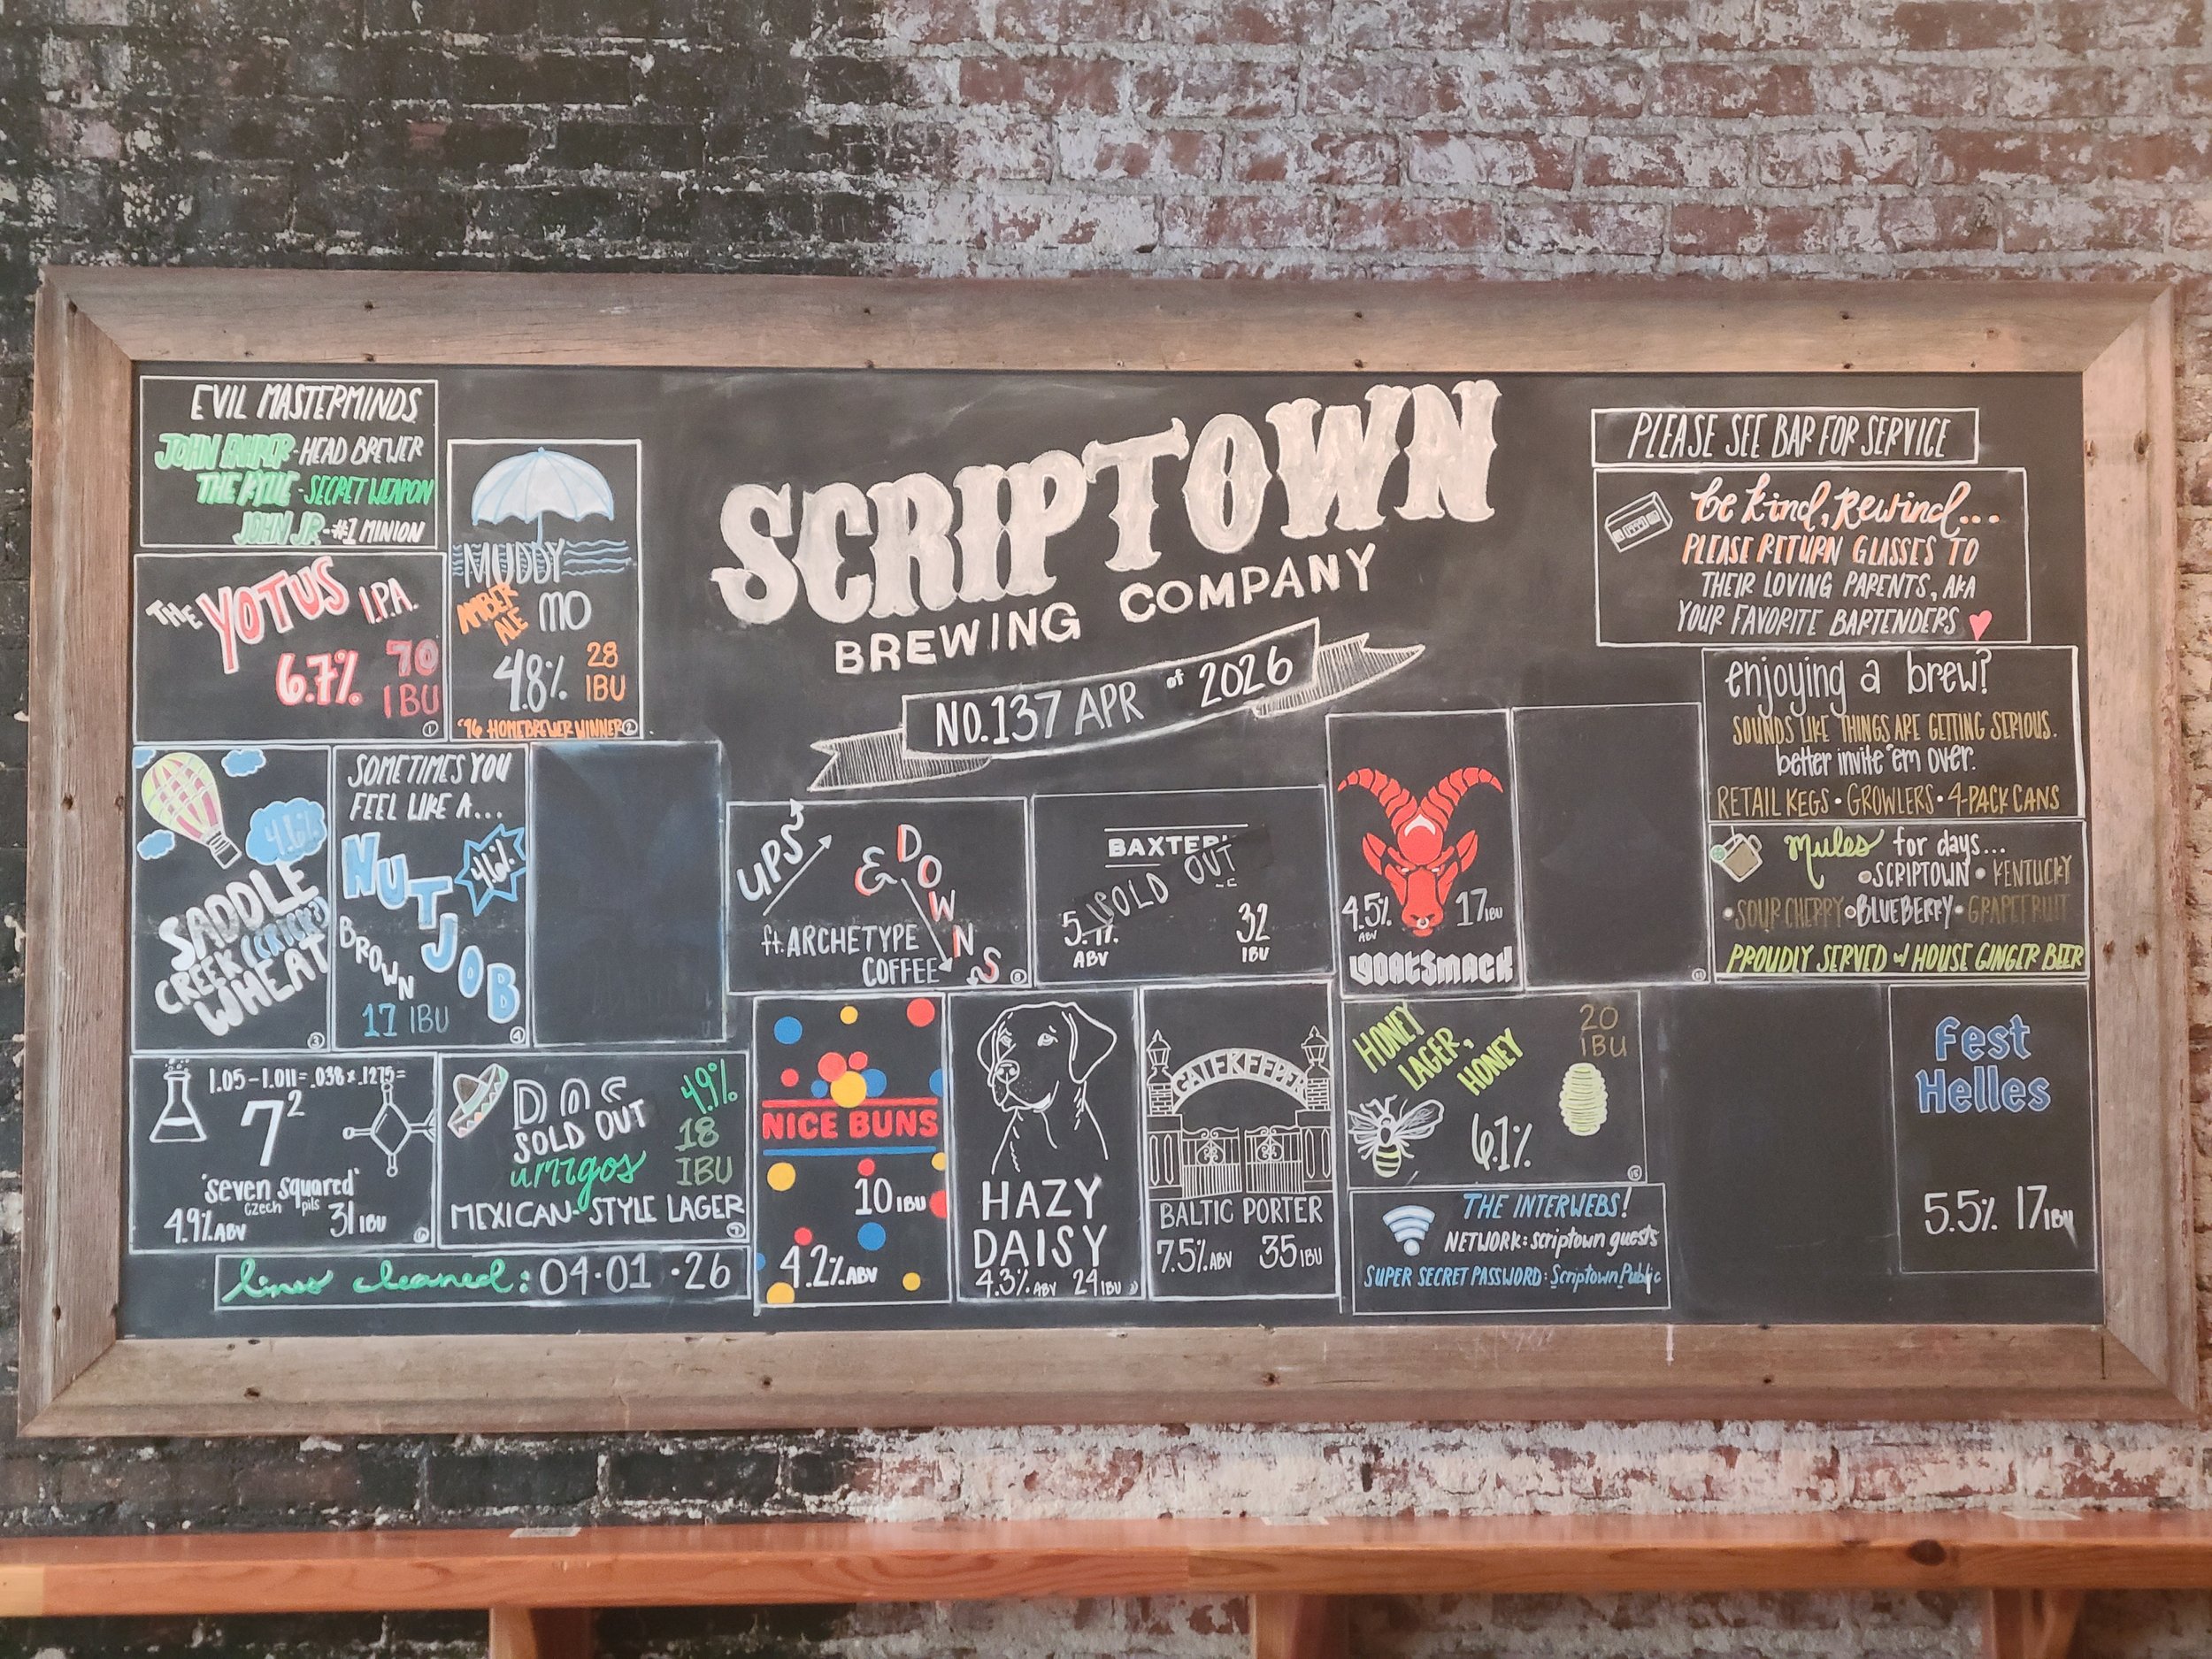 EVIL MASTERMINDS
JOHN - HEAD BREWER
THE KYLE - SECRET WEAPON
JOHN JR - #1 MINION
THE YOTUS I.P.A.
6.7% 70
IBU
1
MUDDY
AMBER ALE MO
4.8% 28 IBU
'96 HOMEBREWER WINNER 2
SCRIPTOWN
BREWING COMPANY
NO. 137 APR of 2026
PLEASE SEE BAR FOR SERVICE
be kind, rewind...
PLEASE RETURN GLASSES TO
THEIR LOVING PARENTS, AKA
YOUR FAVORITE BARTENDERS
enjoying a brew?
SOUNDS LIKE THINGS ARE GETTING SERIOUS.
better invite 'em over.
RETAIL KEGS • GROWLERS • 4-PACK CANS
Mules for days...
SCRIPTOWN • KENTUCKY
• SOUR CHERRY • BLUEBERRY • GRAPEFRUIT
PROUDLY SERVED w/ HOUSE GINGER BEER
4.6%
SADDLE
CREEK (CRICK)
WHEAT
3
SOMETIMES YOU
FEEL LIKE A...
NUT JOB
4.6%
BROWN
17 IBU
4
UPS
& DOWNS
ft. ARCHETYPE
COFFEE
8
BAXTER
SOLD OUT
5.
ABV
32
IBU
4.5%
ABV
17 IBU
GOATSMACK
1.05 - 1.011 = .038 x .1275 =
7²
"seven squared"
czech pils
4.9% ABV 31 IBU
6
DOS
SOLD OUT
amigos
4.9%
18
IBU
MEXICAN-STYLE LAGER
7
lines cleaned: 04.01.26
NICE BUNS
10 IBU
4.2% ABV
HAZY
DAISY
4.3% ABV 24 IBU
GATEKEEPER
BALTIC PORTER
7.5% ABV 35 IBU
HONEY
LAGER,
HONEY
20
IBU
6.1%
15
THE INTERWEBS!
NETWORK: scriptown guests
SUPER SECRET PASSWORD: ScriptownPublic
Fest
Helles
5.5% 17 IBU